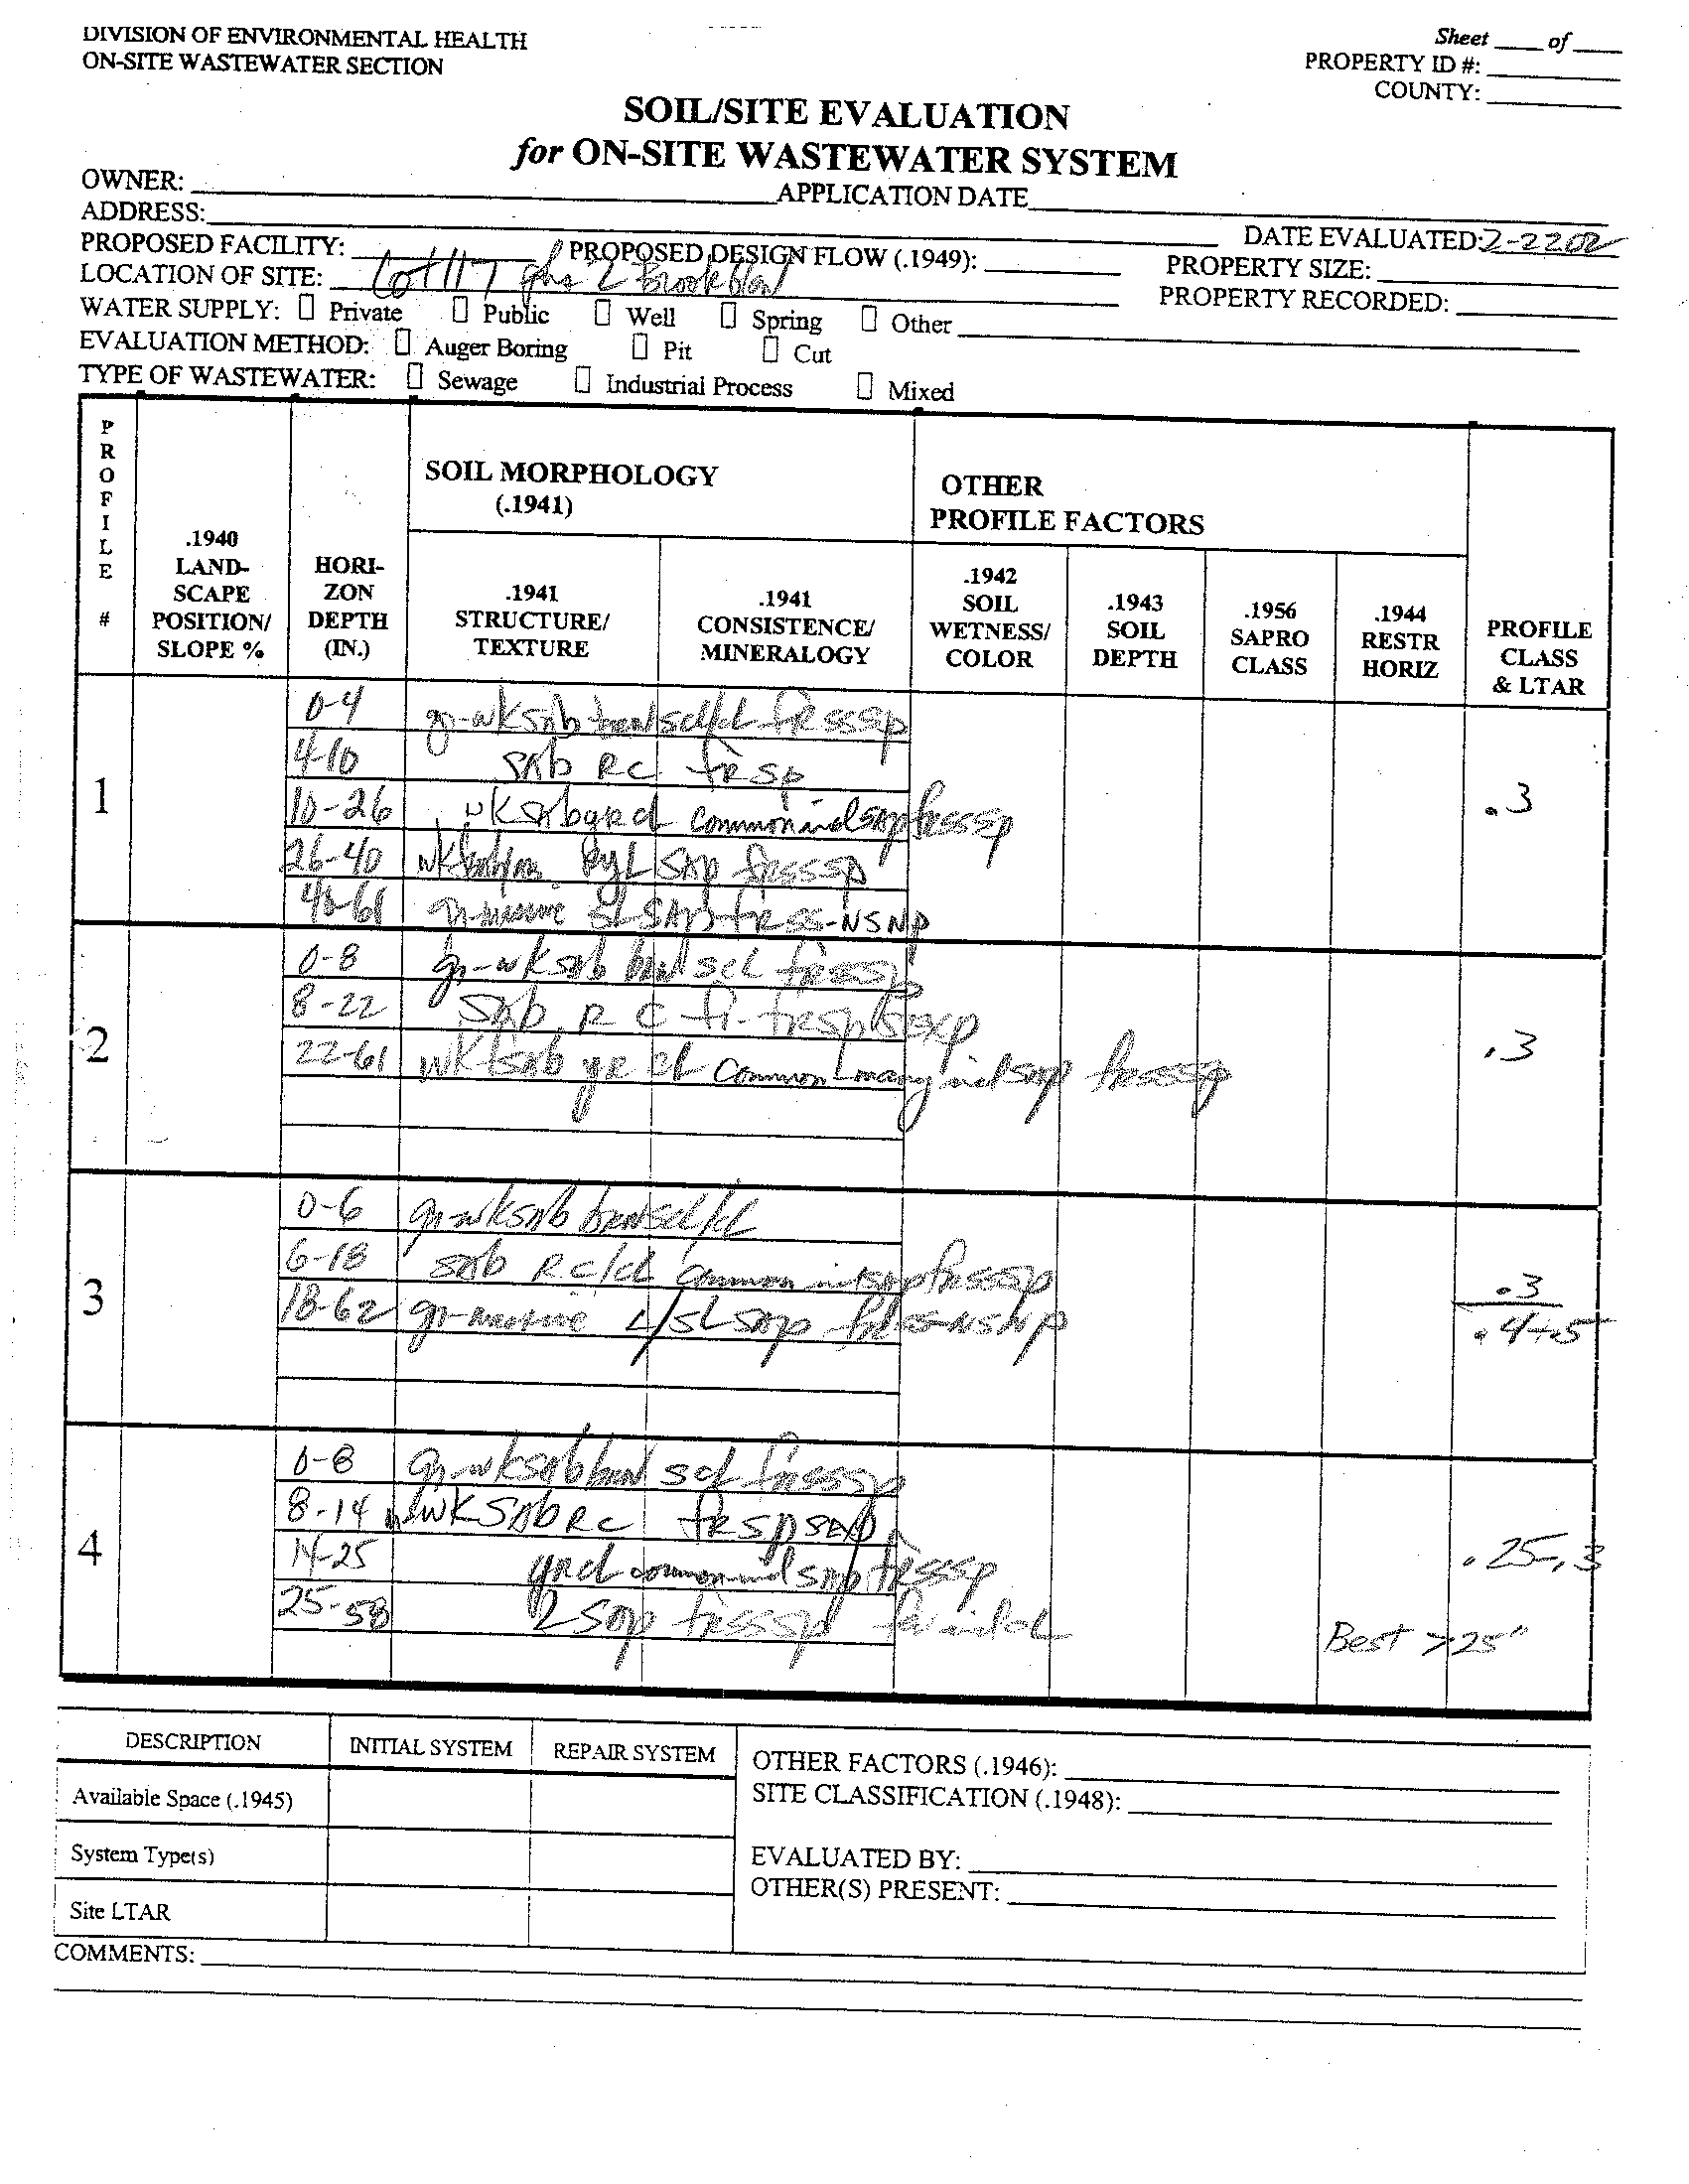 DIVISION OF ENVIRONMENTAL HEALTH
ON-SITE WASTEWATER SECTION
Sheet ____ of ____
PROPERTY ID #:
COUNTY:
SOIL/SITE EVALUATION
for ON-SITE WASTEWATER SYSTEM
OWNER: APPLICATION DATE
ADDRESS:
DATE EVALUATED: 2-2202
PROPOSED FACILITY: PROPOSED DESIGN FLOW (.1949): PROPERTY SIZE:
LOCATION OF SITE: Lot 117 phs 2 PROPERTY RECORDED:
WATER SUPPLY: Private Public Well Spring Other
EVALUATION METHOD: Auger Boring Pit Cut
TYPE OF WASTEWATER: Sewage Industrial Process Mixed
PROFILE #
.1940 LAND-SCAPE POSITION/ SLOPE %
HORI-ZON DEPTH (IN.)
SOIL MORPHOLOGY (.1941)
.1941 STRUCTURE/ TEXTURE
.1941 CONSISTENCE/ MINERALOGY
OTHER PROFILE FACTORS
.1942 SOIL WETNESS/ COLOR
.1943 SOIL DEPTH
.1956 SAPRO CLASS
.1944 RESTR HORIZ
PROFILE CLASS & LTAR
1
0-4 gr-wksbb scl/cl frsssp
4-10 sbb RC frsp
10-26 common sap frsssp
26-40 L sap frsssp
40-61 gr-massive SL SAP frss-NSNP
.3
2
0-8 gr-wksbb scl frsssp
8-22 sbb R C fi-frsp
22-61 yr cl common-many sap frsssp
.3
3
0-6 gr-wksbb scl/cl
6-18 sbb RC/cl common sap frsssp
18-62 gr-massive L/SL sap frss-nsnp
.3
.4+.5
4
0-8 gr-wksbb scl frsssp
8-14 wksbb RC frsp
14-25 yrcl common sap frsssp
25-58 L sap frsssp
.25-.3
Best >25"
DESCRIPTION INITIAL SYSTEM REPAIR SYSTEM
Available Space (.1945)
System Type(s)
Site LTAR
OTHER FACTORS (.1946):
SITE CLASSIFICATION (.1948):
EVALUATED BY:
OTHER(S) PRESENT:
COMMENTS: